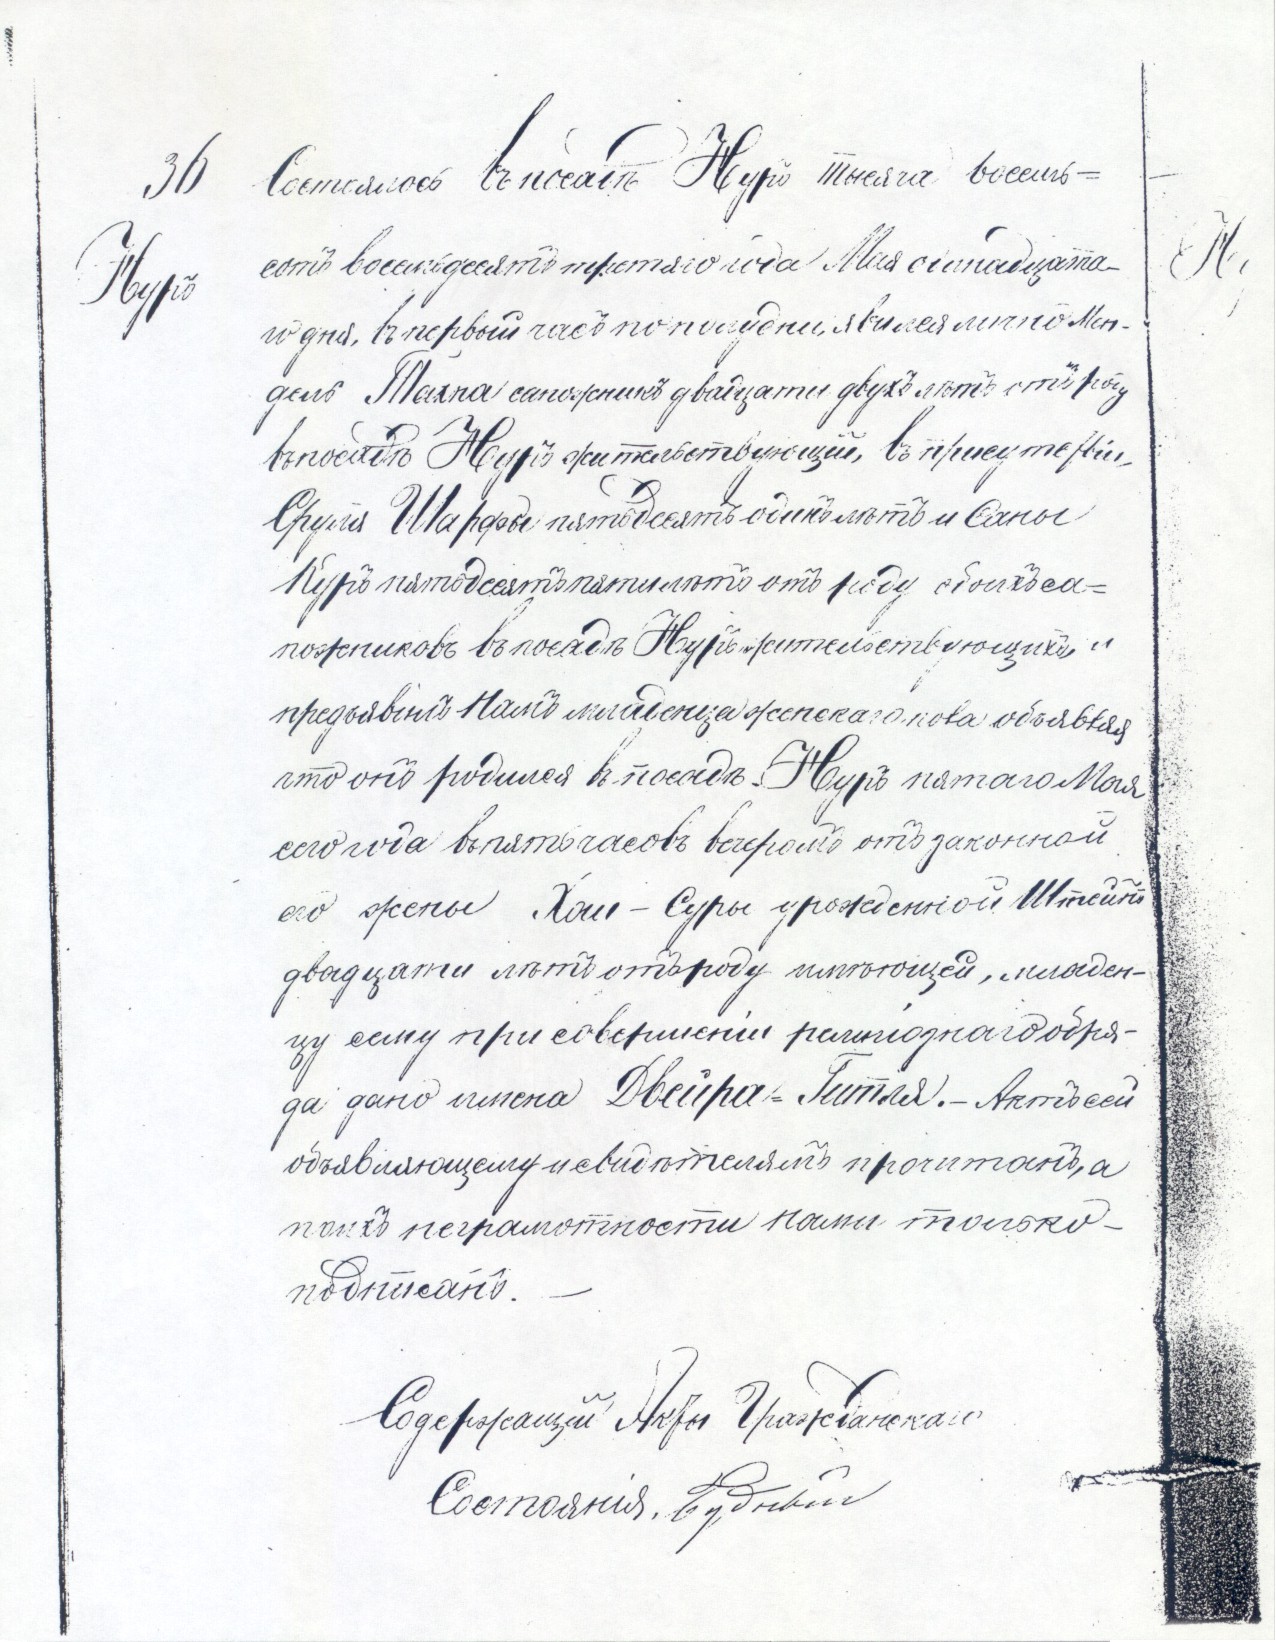 36
Состоялось въ посадѣ Нуръ тысяча восемь=
Нуръ
сотъ восемьдесятъ третяго года Мая одинадцата-
го дня, въ первый часъ по полудни, явился лично Мен-
дель сапожникъ двадцати двухъ лѣтъ отъ роду
въ посадѣ Нуръ жительствующій, въ присутствіи
Сруля Шарфы пятьдесятъ одинъ лѣтъ и
Куръ пятьдесятъ пяти лѣтъ отъ роду обоихъ са=
пожниковъ въ посадѣ Нуръ жительствующихъ, и
предъявилъ намъ младенца женскаго пола объявляя
что онъ родился въ посадѣ Нуръ пятаго Мая
сего года въ пять часовъ вечеромъ отъ законной
его жены Хаи - Суры урожденной Штейнъ
двадцати лѣтъ отъ роду имѣющей, младен-
цу сему при совершеніи религіознаго обря-
да дано имена Двейра = Гитля. - Актъ сей
объявляющему и свидѣтелямъ прочитанъ, а
по ихъ неграмотности нами только -
подписанъ. —
Содержащій Акты Гражданскаго
Состоянія,